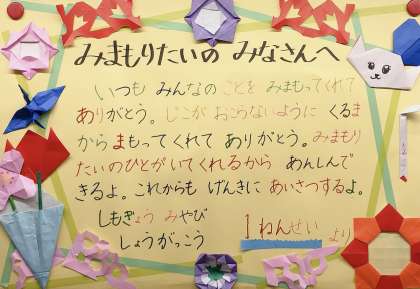 みまもりたいの みなさんへ
いつも みんなの ことを みまもってくれて
ありがとう。じこが おこらないように くるま
から まもってくれて ありがとう。みまもり
たいのひとが いてくれるから あんしんで
きるよ。これからも げんきに あいさつするよ。
しもぎょう みやび
しょうがっこう
1ねんせい より